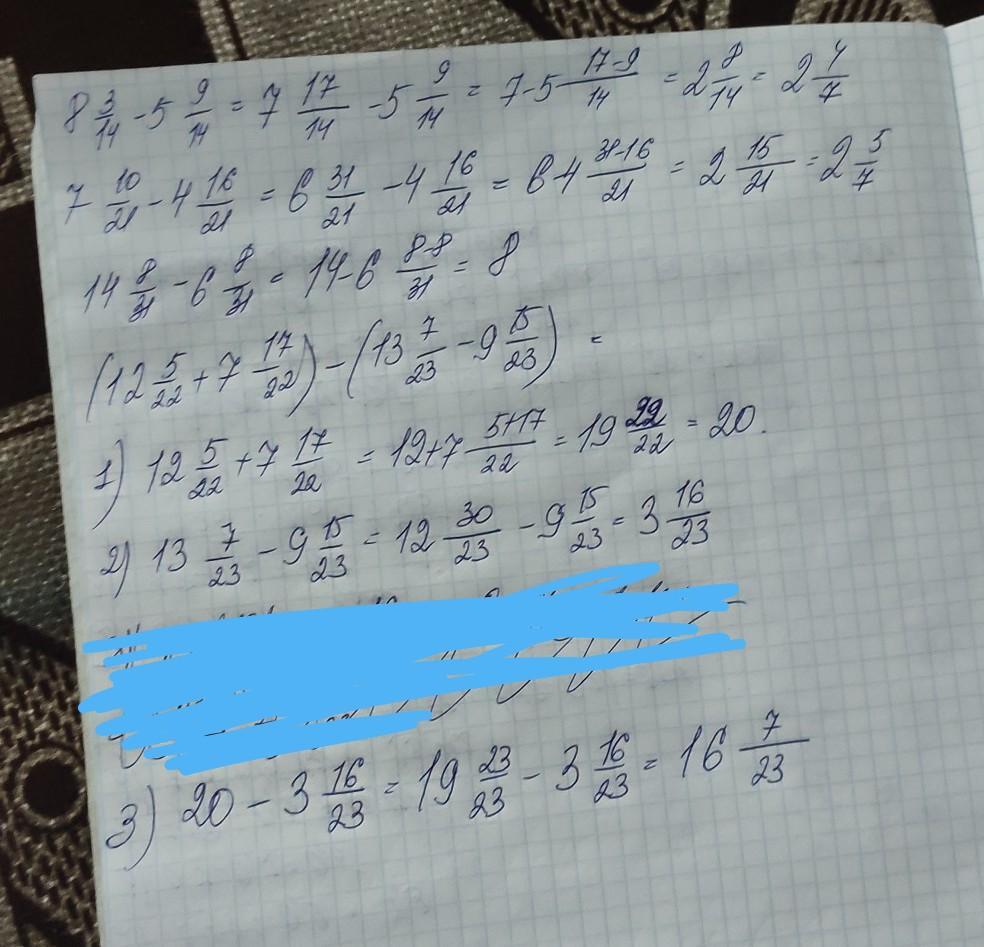 8 3/14 - 5 9/14 = 7 17/14 - 5 9/14 = 7-5 17-9/14 = 2 8/14 = 2 4/7
7 10/21 - 4 16/21 = 6 31/21 - 4 16/21 = 6-4 31-16/21 = 2 15/21 = 2 5/7
14 8/31 - 6 8/31 = 14-6 8-8/31 = 8
(12 5/22 + 7 17/22) - (13 7/23 - 9 15/23) =
1) 12 5/22 + 7 17/22 = 12+7 5+17/22 = 19 22/22 = 20.
2) 13 7/23 - 9 15/23 = 12 30/23 - 9 15/23 = 3 16/23
3) 20 - 3 16/23 = 19 23/23 - 3 16/23 = 16 7/23